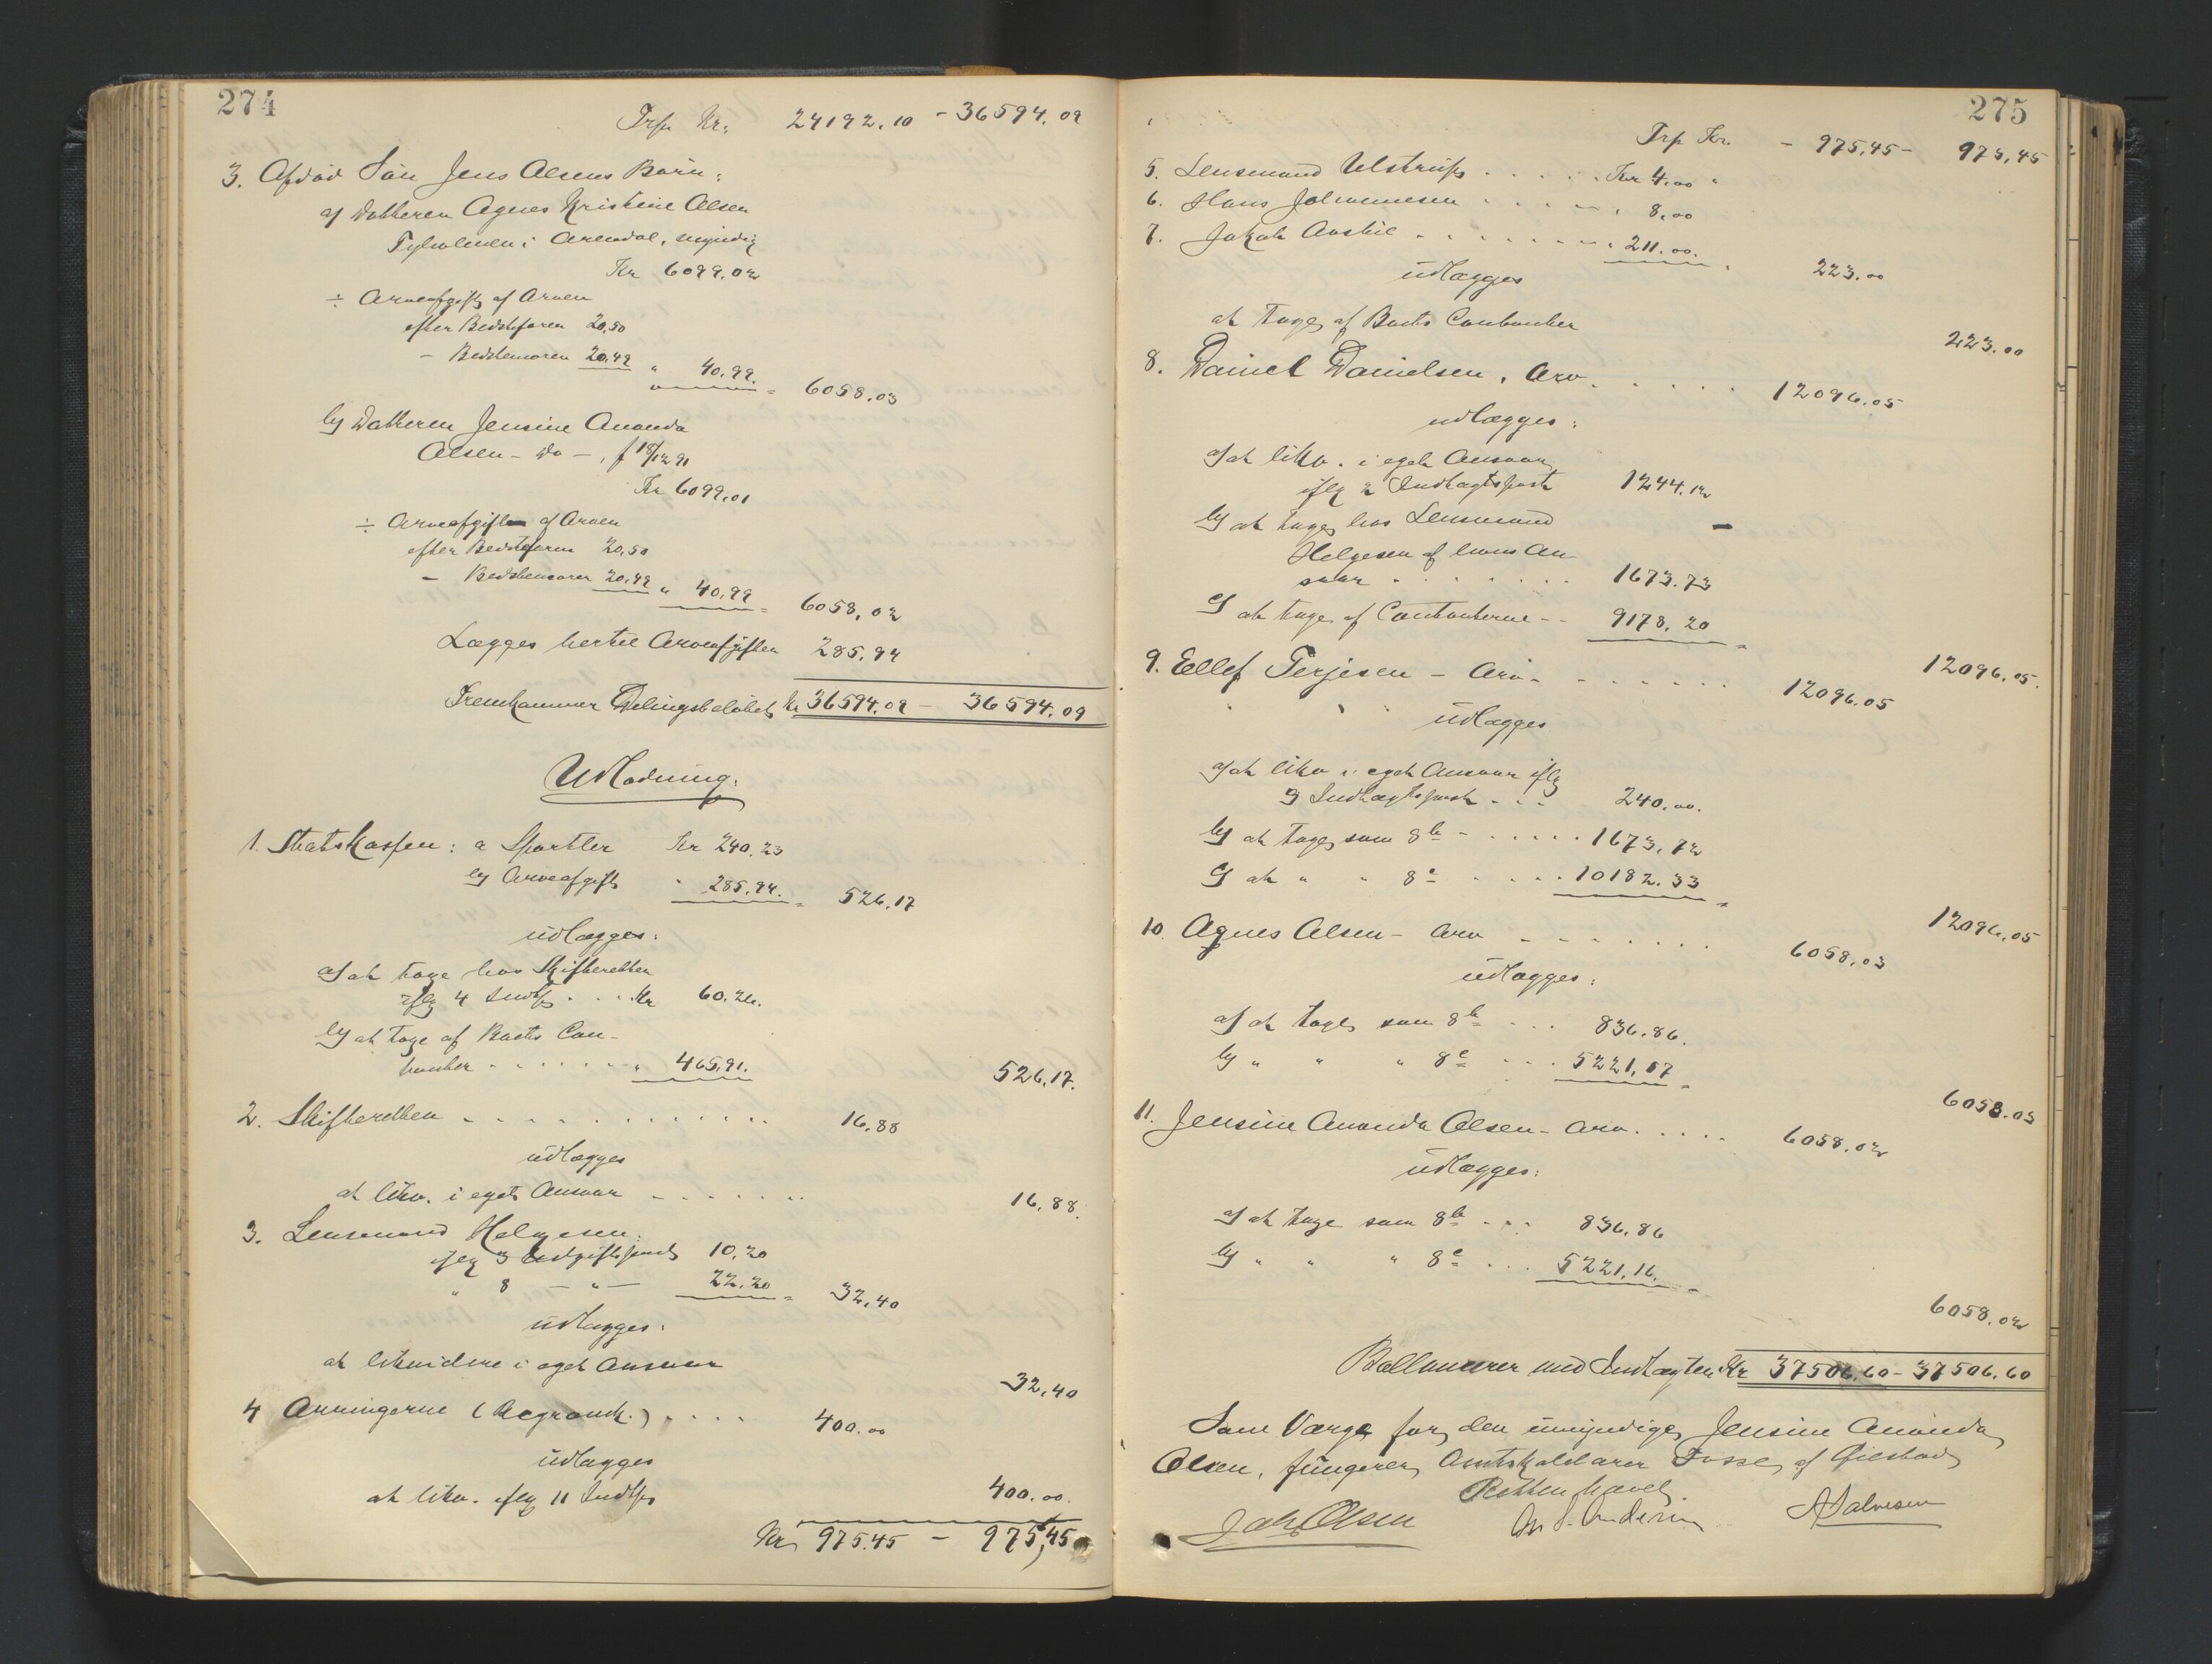 274
Trp Kr. 24192.10 - 36594.09
3. Afdød Søn Jens Olsens Børn:
a) Datteren Agnes Kristine Olsen
Tyholmen i Arendal, myndig
Kr 6099.02
÷ Arveafgift af Arven
efter Bedstefaren 20,50
- Bedstemoren 20,49 " 40.99. = 6058.03
b) Datteren Jensine Amanda
Olsen - Do -, f 18/12 91
Kr 6099,01
÷ Arveafgiften af Arven
efter Bedstefaren 20,50
- Bedstemoren 20,49 " 40,99 = 6058,02
Lægges hertil Arveafgiften 285,94
Fremkommer Delingsbeløbet Kr 36594.09 - 36594.09
Udlodning.
1. Statskassen: a Sportler Kr 240.23
b) Arveafgift " 285,94. = 526,17
udlægges:
a) at tage hos Skifteretten
iflg 4 Indtp . . . Kr 60.26.
b) at tage af Boets Con-
tanter . . . . . . " 465,91.
526,17.
2. Skifteretten . . . . . . . . . . . 16,88
udlægges
at likv. i eget Ansvar . . . . . . .
16,88.
3. Lensmand Helgesen:
iflg 3 Udgiftspost 10.20
" 8 - " - 22.20 = 32,40
udlægges:
at likvidere i eget Ansvar
32,40
4 Arvingerne ( ) . . . . 400.00
udlægges
at likv. iflg 11 Indtp
400.00.
Kr 975.45 - 975,45
275
Trp Kr. - 975,45 - 975,45
5. Lensmand Ulstrup . . . . . Kr 4.00 "
6. Hans Johannesen . . . . . " 8,00
7. Jakob . . . . . . . . " 211.00. " 223.00
udlægges
at tage af Boets Contanter
223.00
8. Daniel Danielsen, Arv. . . . . . 12096.05
udlægges:
a) at likv. i eget Ansvar
iflg 2 Indtægtspost 1244.12
b) at tage hos Lensmand
Helgesen af hans An-
svar . . . . . . . 1673.73
c) at tage af Contanterne - - 9178,20
12096,05.
9. Ellef Terjesen - Arv - . . . . . . 12096.05
udlægges
a) at likv i eget Ansvar iflg
9 Indtægtspost . . . 240.00.
b) at tage som 8b - . . . . . 1673,72
c) at " " 8c . . . . . 10182.33
12096,05
10. Agnes Olsen - Arv . . . . . . . 6058,03
udlægges:
a) at tage som 8b . . . 836.86.
b) " " " 8c . . . 5221,17
6058.03
11. Jensine Amanda Olsen - Arv. . . . . 6058.02
udlægges:
a) at tage som 8b . . . 836,86
b) " " " 8c . . . 5221,16.
6058,02
Ballancerer med Indtægten Kr 37506,60 - 37506,60
Som Værge for den umyndige Jensine Amanda
Olsen, fungerer Fosse af Gjerstad
Retten hævet.
Joh Olsen And. Andersen A Salvesen